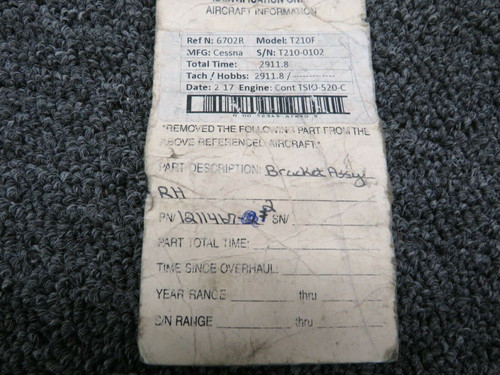 AIRCRAFT INFORMATION
Ref N: 6702R Model: T210F
MFG: Cessna S/N: T210-0102
Total Time: 2911.8
Tach / Hobbs: 2911.8 / ----------
Date: 2 17 Engine: Cont TSIO-520-C
"REMOVED THE FOLLOWING PART FROM THE
ABOVE REFERENCED AIRCRAFT."
PART DESCRIPTION: Bracket Assy
RH
P/N/ 1211467- 2 S/N/
PART TOTAL TIME:
TIME SINCE OVERHAUL:
YEAR RANGE thru
S/N RANGE thru